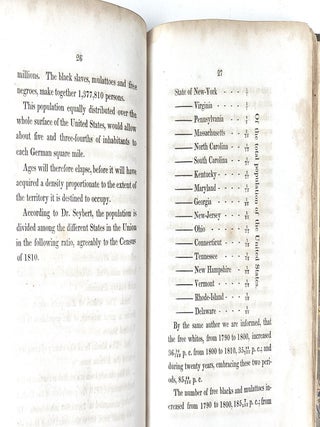 26
millions. The black slaves, mulattoes and free
negroes, make together 1,377,810 persons.
This population equally distributed over the
whole surface of the United States, would allow
about five and three-fourths of inhabitants to
each German square mile.
Ages will therefore elapse, before it will have
acquired a density proportionate to the extent of
the territory it is destined to occupy.
According to Dr. Seybert, the population is
divided among the different States in the Union
in the following ratio, agreeably to the Census
of 1810.
27
State of New-York
Virginia
Pennsylvania
Massachusetts
North Carolina
South Carolina
Kentucky
Maryland
Georgia
New-Jersey
Ohio
Connecticut
Tennessee
New Hampshire
Vermont
Rhode-Island
Delaware
Of the total population of the United States.
By the same author we are informed, that
the free whites, from 1790 to 1800, increased
p. c. from 1800 to 1810, p. c.; and
during twenty years, embracing these two peri-
ods, p. c.
The number of free blacks and mulattoes in-
creased from 1790 to 1800, p. c.; from